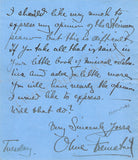 I should like very much to
express my opinion of the
person but this is difficult.
If you take all that is said in
your little book of musical
and add a little more
you will have nearly the opinion
I would like to express.
Will that do?
Very Sincerely Yours
Clara
Tuesday